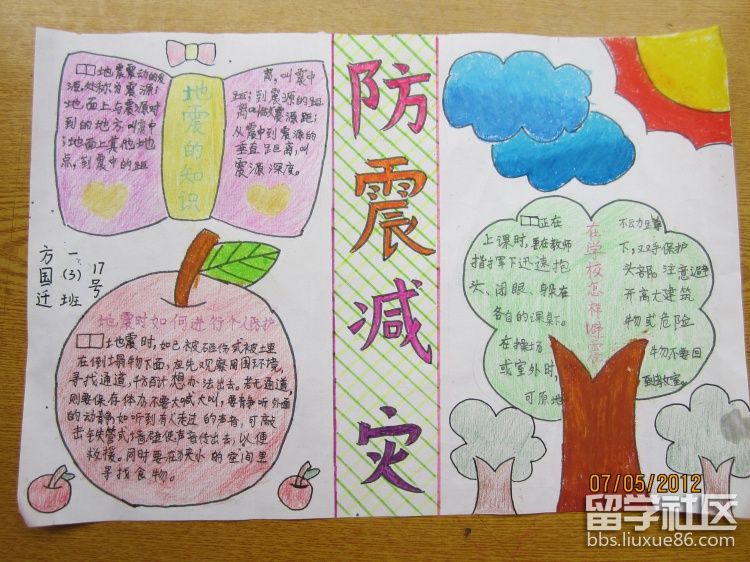 地震的知识
地震震动的发
源处称为震源;
地面上与震源对
到的地方叫震中
;地面上其他地
点,到震中的距
离,叫震中
距;到震源的距
离叫做震源距;
从震中到震源的
垂直距离,叫
震源深度。
方国迁
一(3)班
17号
地震时如何进行个人防护
地震时,如已被砸伤或被埋
在倒塌物下面,应先观察周围环境,
寻找通道,千方百计想办法出去。若无通道
则要保存体力不要大喊大叫,要静听外面
的动静,如听到有人走过的声音,可敲
击铁管或墙壁使声音传出去,以便
救援。同时要在狭小的空间里
寻找食物。
防震减灾
在学校怎样避震
正在
上课时,要在教师
指挥下迅速抱
头、闭眼、躲在
各自的课桌下。
在操场
或室外时,
可原地
不动蹲
下,双手保护
头部 注意避
开高大建筑
物或危险
物不要回
到教室。
07/05/2012
留学社区
bbs.liuxue86.com